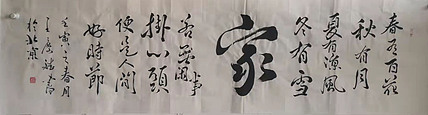 春有百花
秋有月
夏有涼風
冬有雪
家
若無閑事
掛心頭
便是人間
好時節
壬寅之春月
於北京